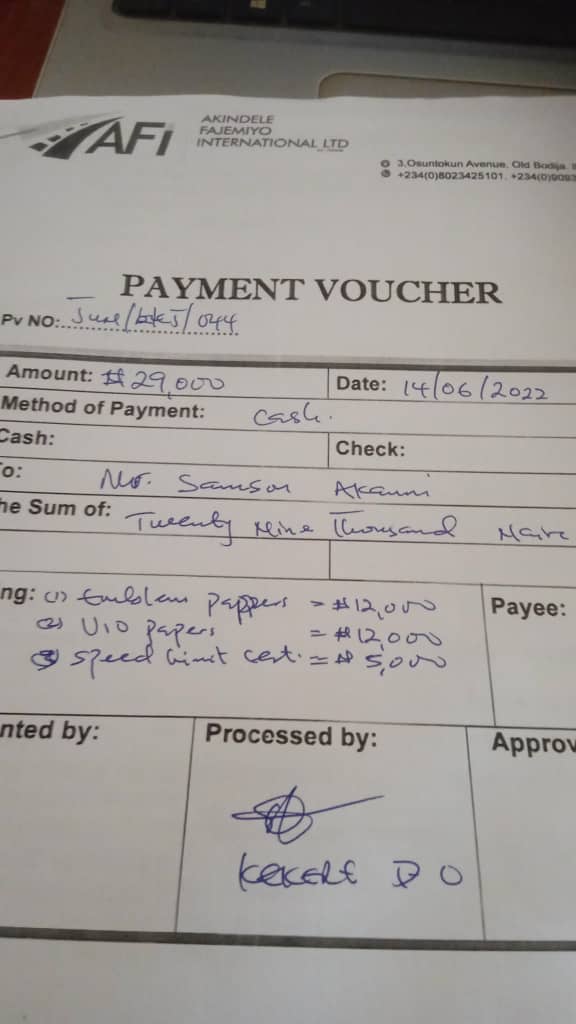 AFI
AKINDELE
FAJEMIYO
INTERNATIONAL LTD
3,Osuntokun Avenue, Old Bodija.
+234(0)8023425101. +234(0)9093
PAYMENT VOUCHER
Pv NO: June/ /044
Amount: ₦29,000 Date: 14/06/2022
Method of Payment: Cash.
Cash: Check:
o: Mr. Samson Akanni
he Sum of: Twenty Nine Thousand Naira
ng: (1) Emblem pappers = ₦12,000 Payee:
(2) UIO papers = ₦12,000
3 Speed limit cert. = ₦5,000
nted by: Processed by: Approv
KEKERE D O